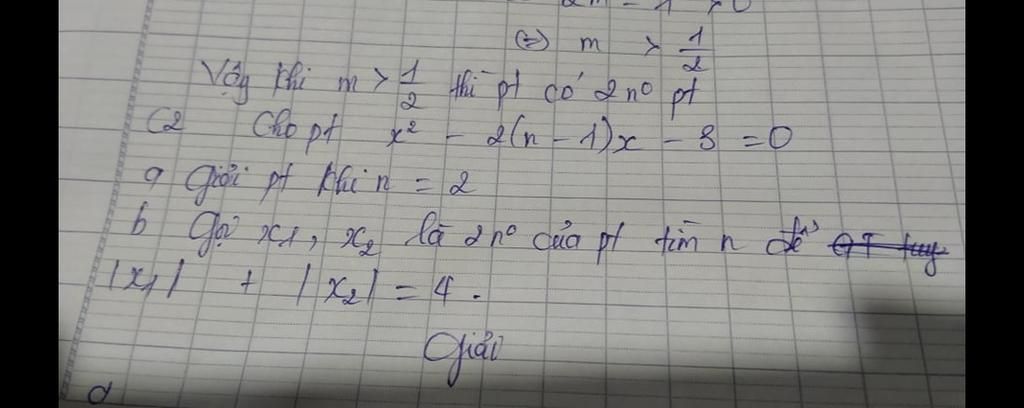 2m - 1 > 0
(=) m > 1/2
Vậy khi m > 1/2 thì pt có 2 n° pt
C2 Cho pt x² - 2(n - 1)x - 3 = 0
a Giải pt khi n = 2
b Gọi x1, x2 là 2n° của pt tìm n để
|x1| + |x2| = 4.
Giải
a